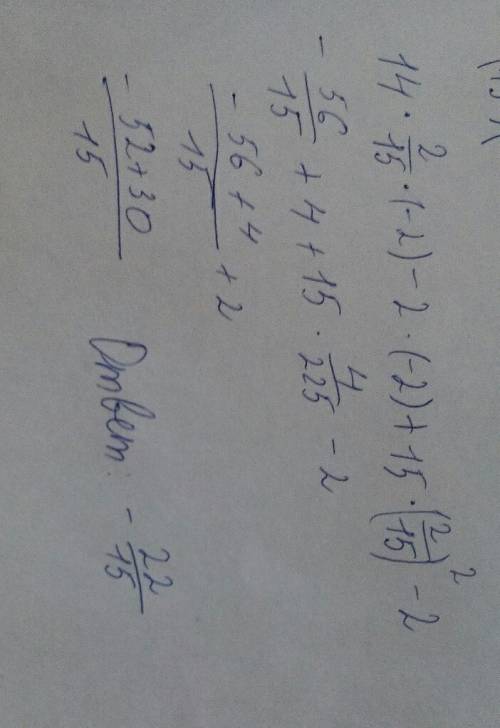 14 · 2/15 · (-2) - 2 · (-2) + 15 · (2/15)² - 2
- 56/15 + 4 + 15 · 4/225 - 2
(- 56 + 4)/15 + 2
(- 52 + 30)/15
Ответ: - 22/15